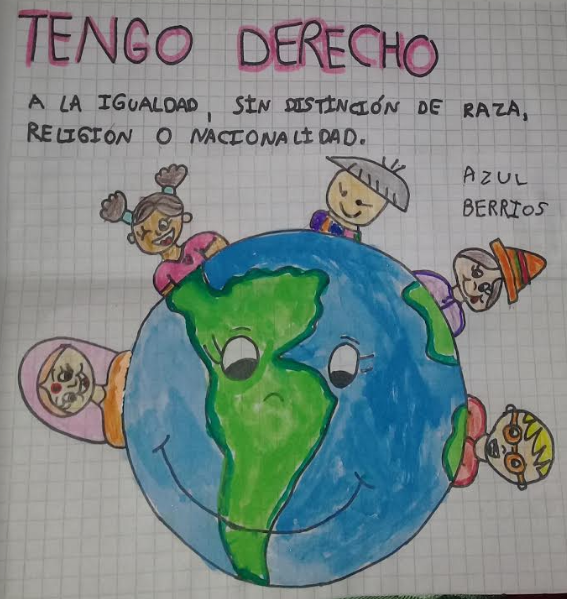 TENGO DERECHO
A LA IGUALDAD, SIN DISTINCIÓN DE RAZA,
RELIGIÓN O NACIONALIDAD.
AZUL
BERRIOS